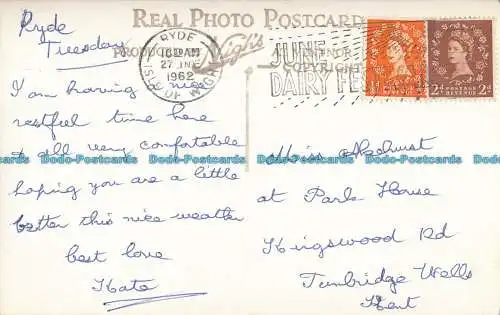 REAL PHOTO POSTCARD
Ryde
Tuesday
PRODUC
Nigh's
COPYRIGHT
RYDE
AM
27 JNE
1962
ISLE OF WIGHT
JUNE
DAIRY FES
½D
POSTAGE
REVENUE
2D
POSTAGE
REVENUE
2D
I am having nice
restful time here
& all very comfortable
hoping you are a little
better this nice weather
best love
Kate
Miss
at Park House
Kingswood Rd
Tunbridge Wells
Kent
Bodo-Postcards Bodo-Postcards Bodo-Postcards Bodo-Postcards
Bodo-Postcards Bodo-Postcards Bodo-Postcards Bodo-Postcards